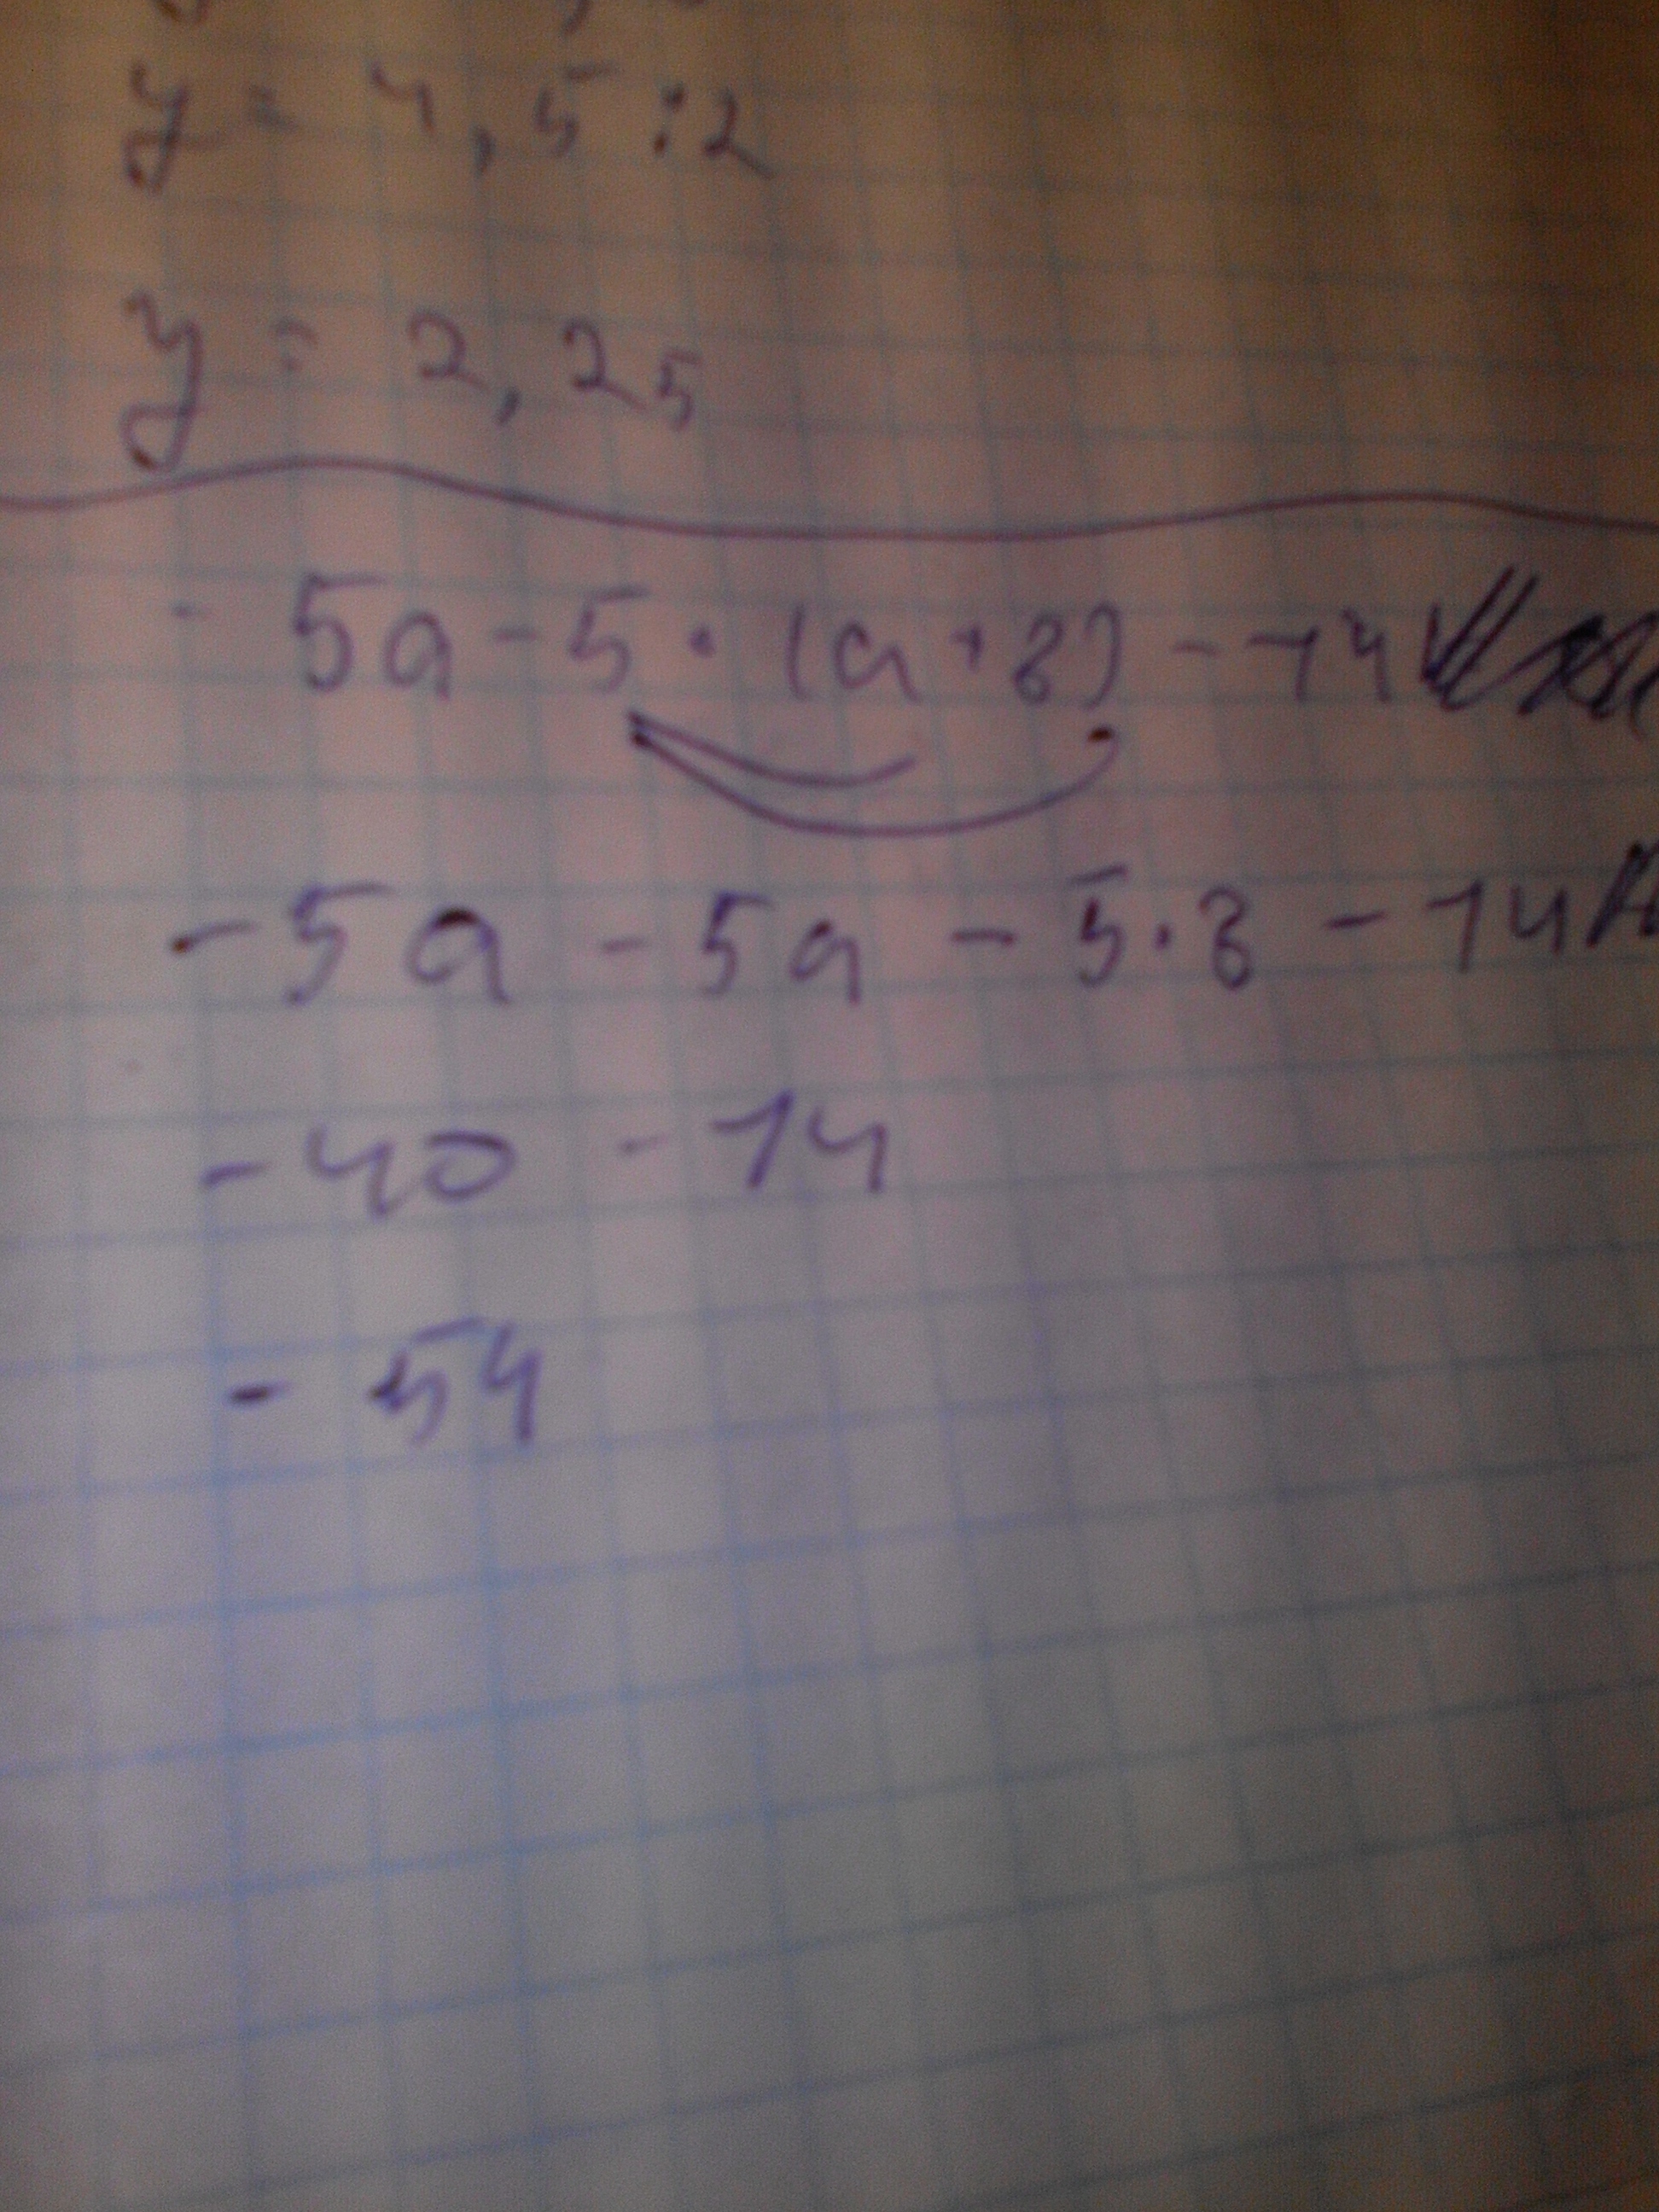 y = 4,5 : 2
y = 2,25
- 5a - 5 · (a + 8) - 14
- 5a - 5a - 5 · 8 - 14
- 40 - 14
- 54